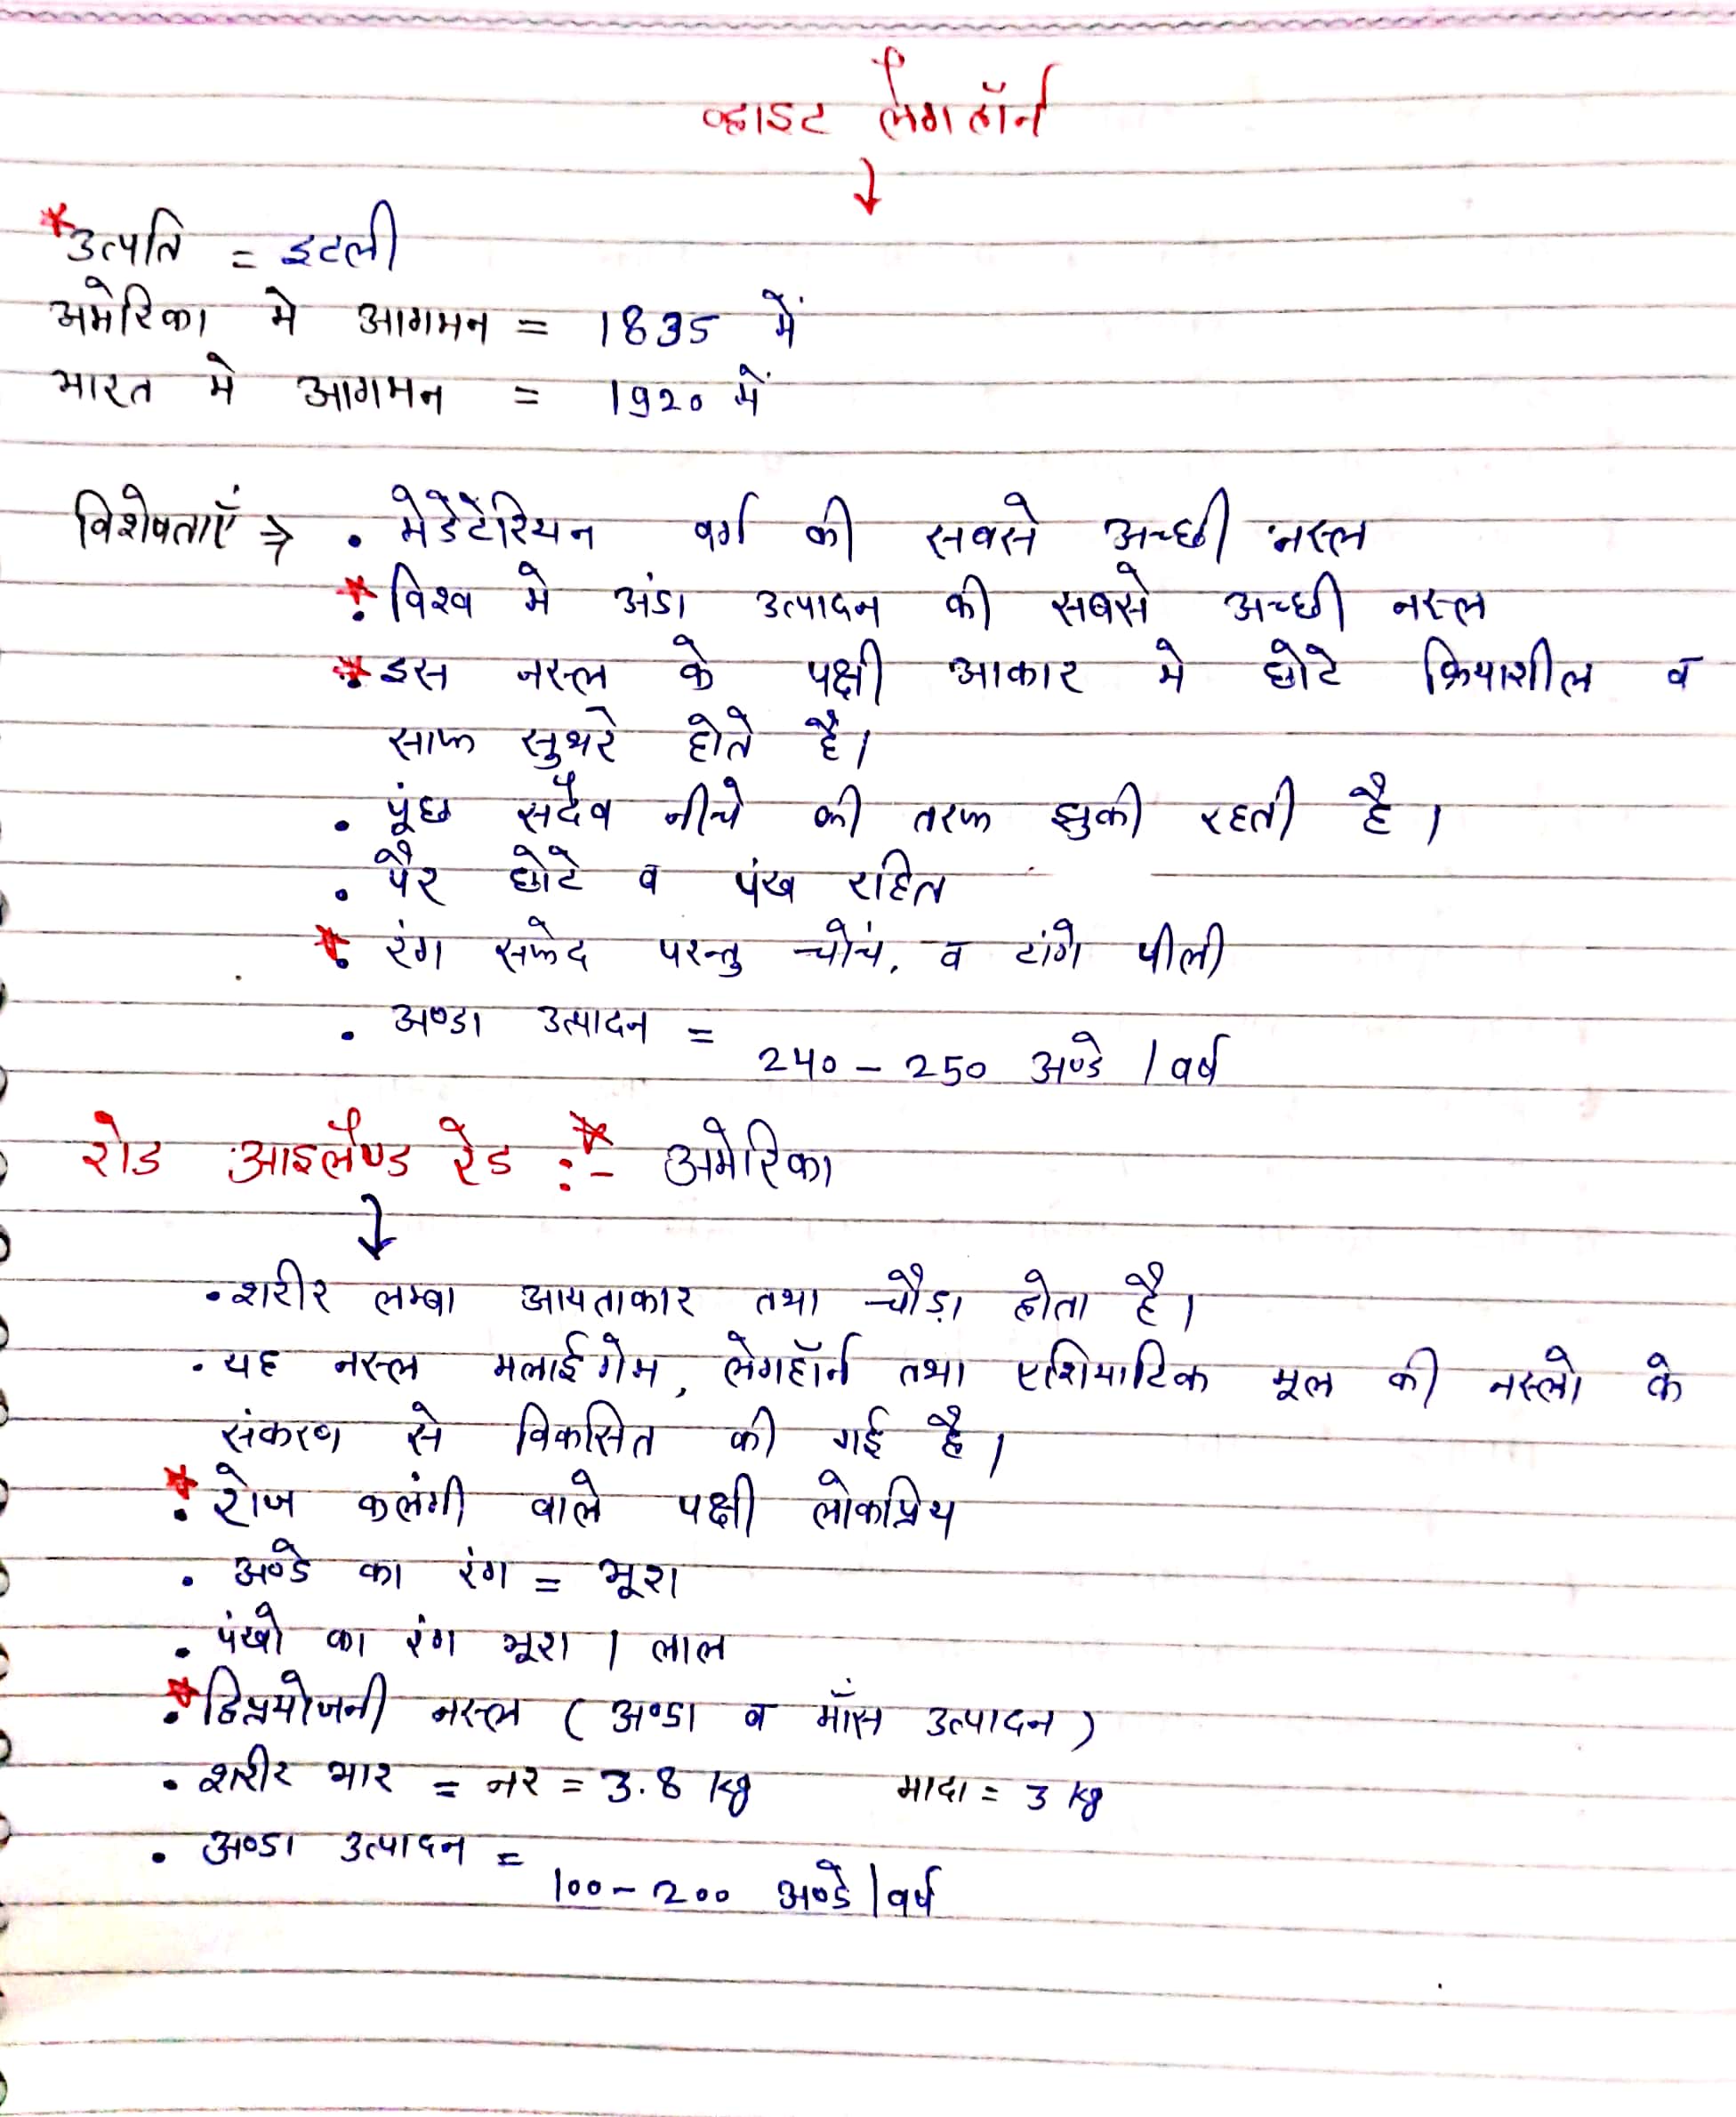 व्हाइट लैगहॉर्न
↓
*उत्पति = इटली
अमेरिका मे आगमन = 1835 में
भारत मे आगमन = 1920 में
विशेषताएँ ⇒ • मेडेटेरियन वर्ग की सबसे अच्छी नस्ल
*• विश्व मे अंडा उत्पादन की सबसे अच्छी नस्ल
*• इस नस्ल के पक्षी आकार मे छोटे क्रियाशील व
साफ सुथरे होते है।
• पूंछ सदैव नीचे की तरफ झुकी रहती है।
• पैर छोटे व पंख रहित
*• रंग सफेद परन्तु चोचं, व टांगे पीली
• अण्डा उत्पादन =
240 - 250 अण्डे / वर्ष
रोड आइलैण्ड रेड :-* अमेरिका
↓
• शरीर लम्बा आयताकार तथा चौड़ा होता है।
• यह नस्ल मलाई गेम, लेगहॉर्न तथा एशियाटिक मूल की नस्लो के
संकरण से विकसित की गई है।
*• रोज कलंगी वाले पक्षी लोकप्रिय
• अण्डे का रंग = भूरा
• पंखो का रंग भूरा / लाल
*• द्विप्रयोजनी नस्ल ( अण्डा व माँस उत्पादन )
• शरीर भार = नर = 3.8 kg मादा = 3 kg
• अण्डा उत्पादन =
100 - 200 अण्डे / वर्ष